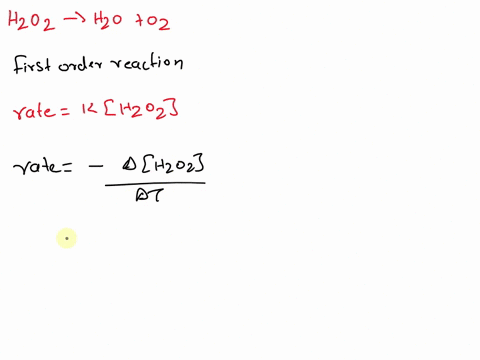 H2O2 → H2O + O2
First order reaction
rate = K [H2O2]
rate = - Δ[H2O2]
ΔT